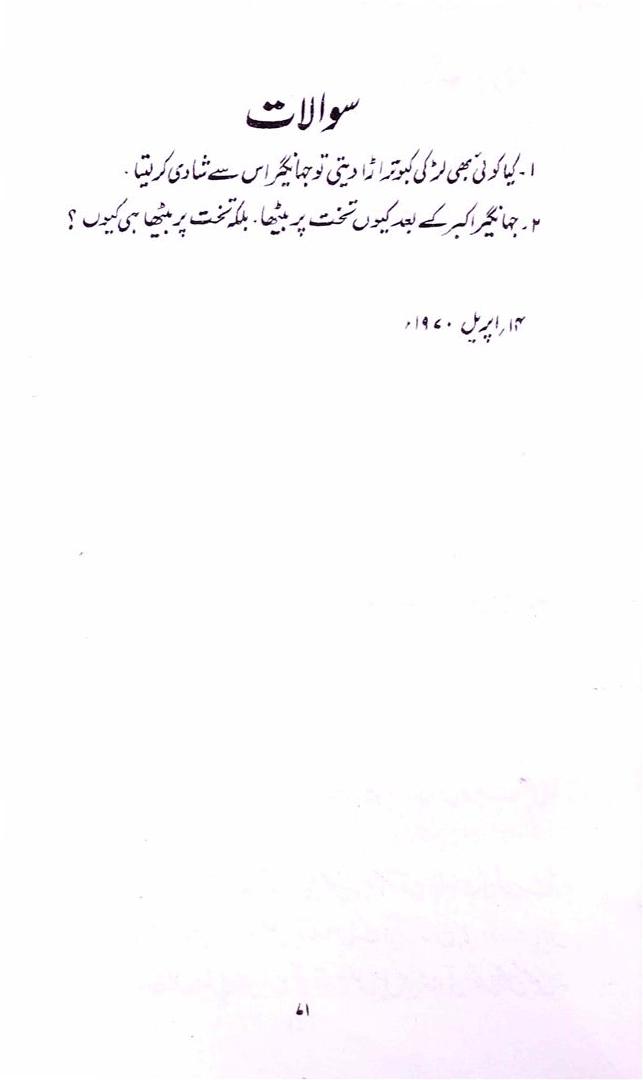 سوالات
۱- کیا کوئی بھی لڑکی کبوتر اڑا دیتی تو جہانگیر اس سے شادی کر لیتا۔
۲۔ جہانگیر اکبر کے بعد کیوں تخت پر بیٹھا۔ بلکہ تخت پر بیٹھا ہی کیوں ؟
۱۴ر اپریل ۱۹۷۰ء
۷۱